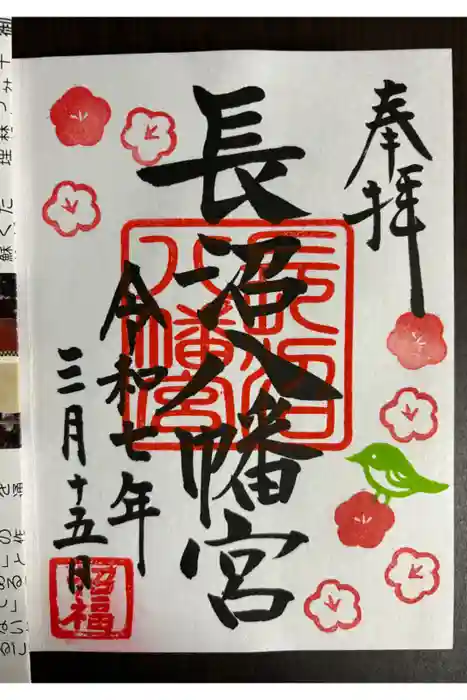 奉拝
長沼八幡宮
令和七年
三月十五日
長沼
八幡宮